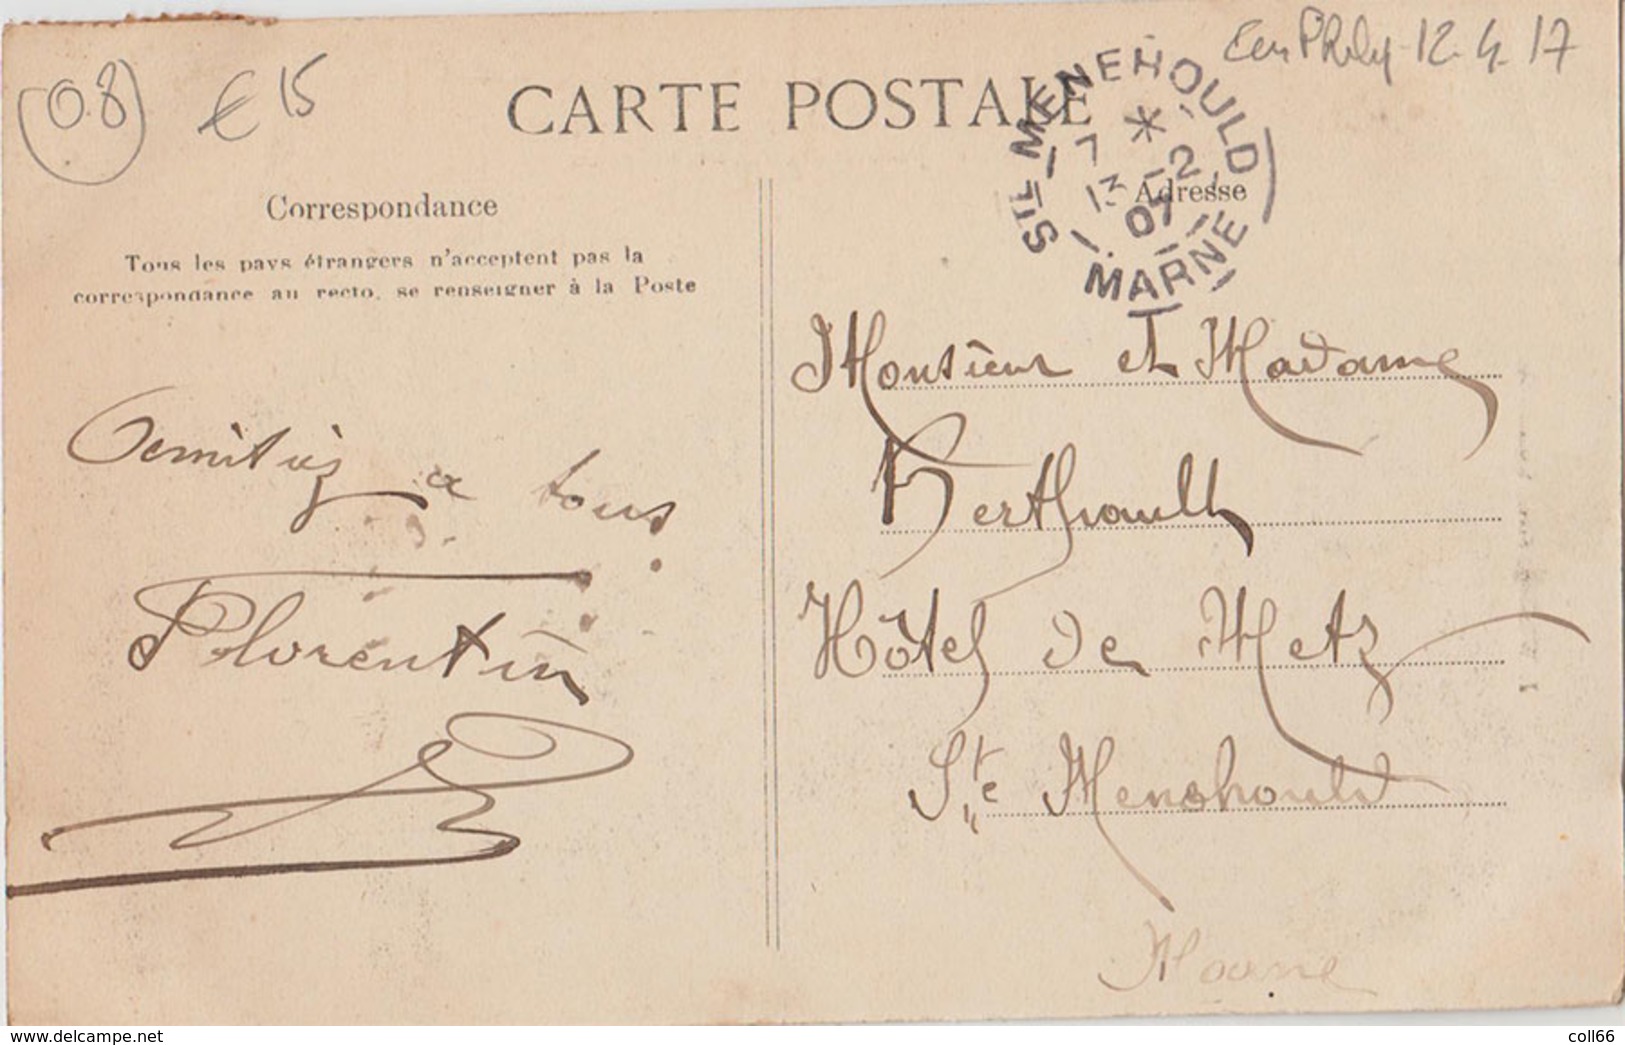 08
€ 15
12.4.17
CARTE POSTALE
STE MENEHOULD
17 * 
13 -2
07
MARNE
Correspondance
Adresse
Tous les pays étrangers n'acceptent pas la
correspondance au recto, se renseigner à la Poste
Amitiés a tous
Florentin
Monsieur et Madame
Berthiault
Hôtel de Metz
Ste Menehould
Marne
delcampe.net
coll66